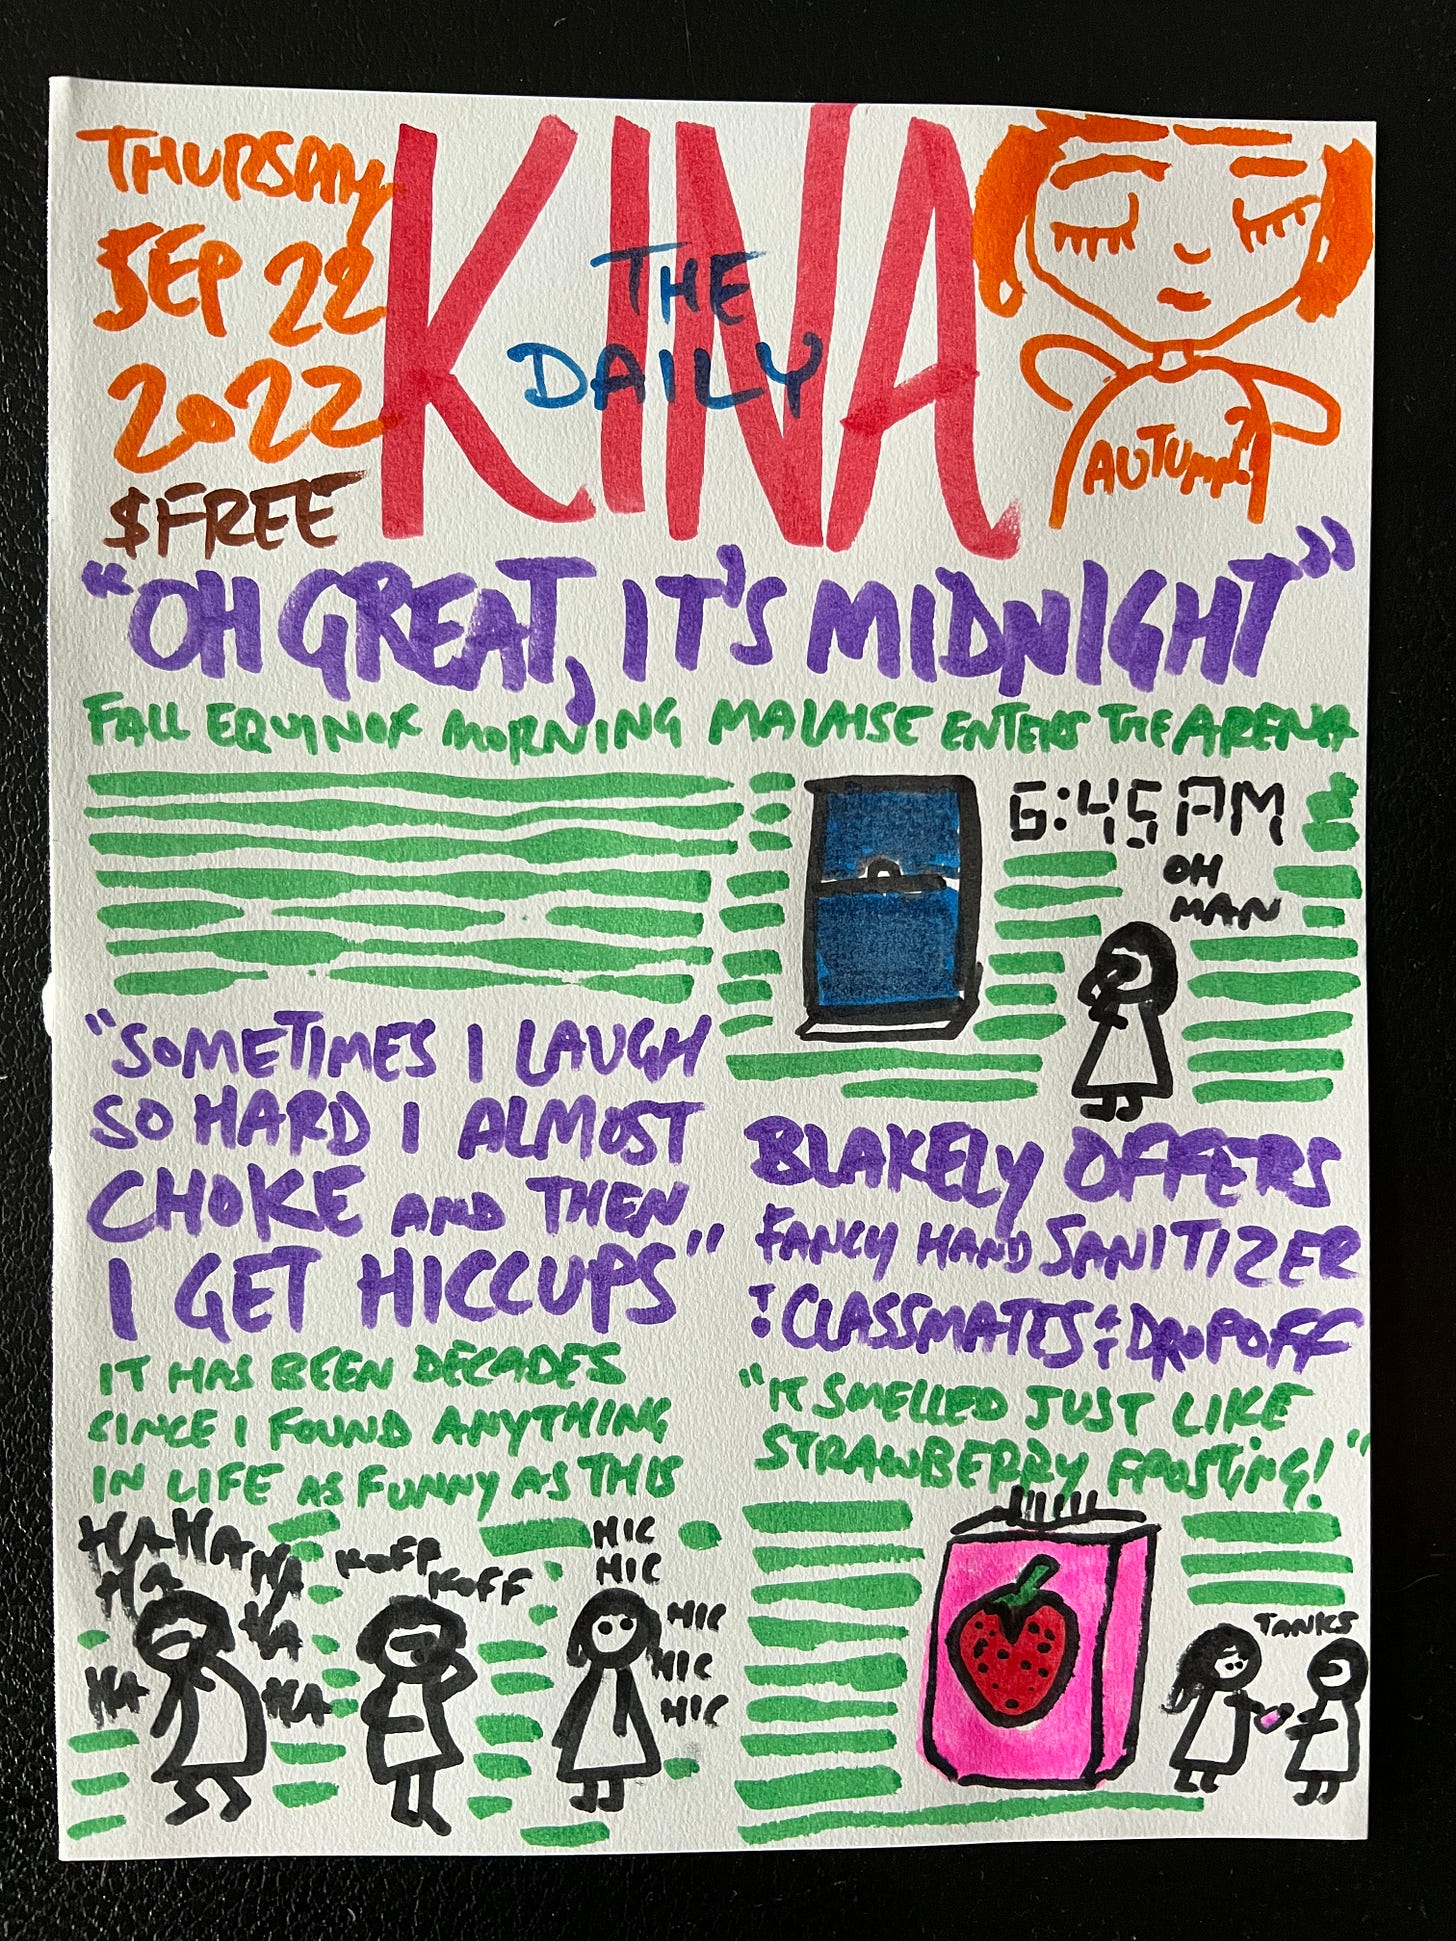 THURSDAY
SEP 22
2022
$FREE
KINA
THE
DAILY
AUTUMN?
"OH GREAT, IT'S MIDNIGHT"
FALL EQUINOX MORNING MALAISE ENTERS THE ARENA
6:45 AM
OH
MAN
"SOMETIMES I LAUGH
SO HARD I ALMOST
CHOKE AND THEN
I GET HICCUPS"
IT HAS BEEN DECADES
SINCE I FOUND ANYTHING
IN LIFE AS FUNNY AS THIS
HA HA HA
HA HA
HA
HA
HA
KOFF
KOFF
HIC
HIC
HIC
HIC
HIC
BLAKELY OFFERS
FANCY HAND SANITIZER
: CLASSMATES & DROPOFF
"IT SMELLED JUST LIKE
STRAWBERRY FROSTING!"
TANKS